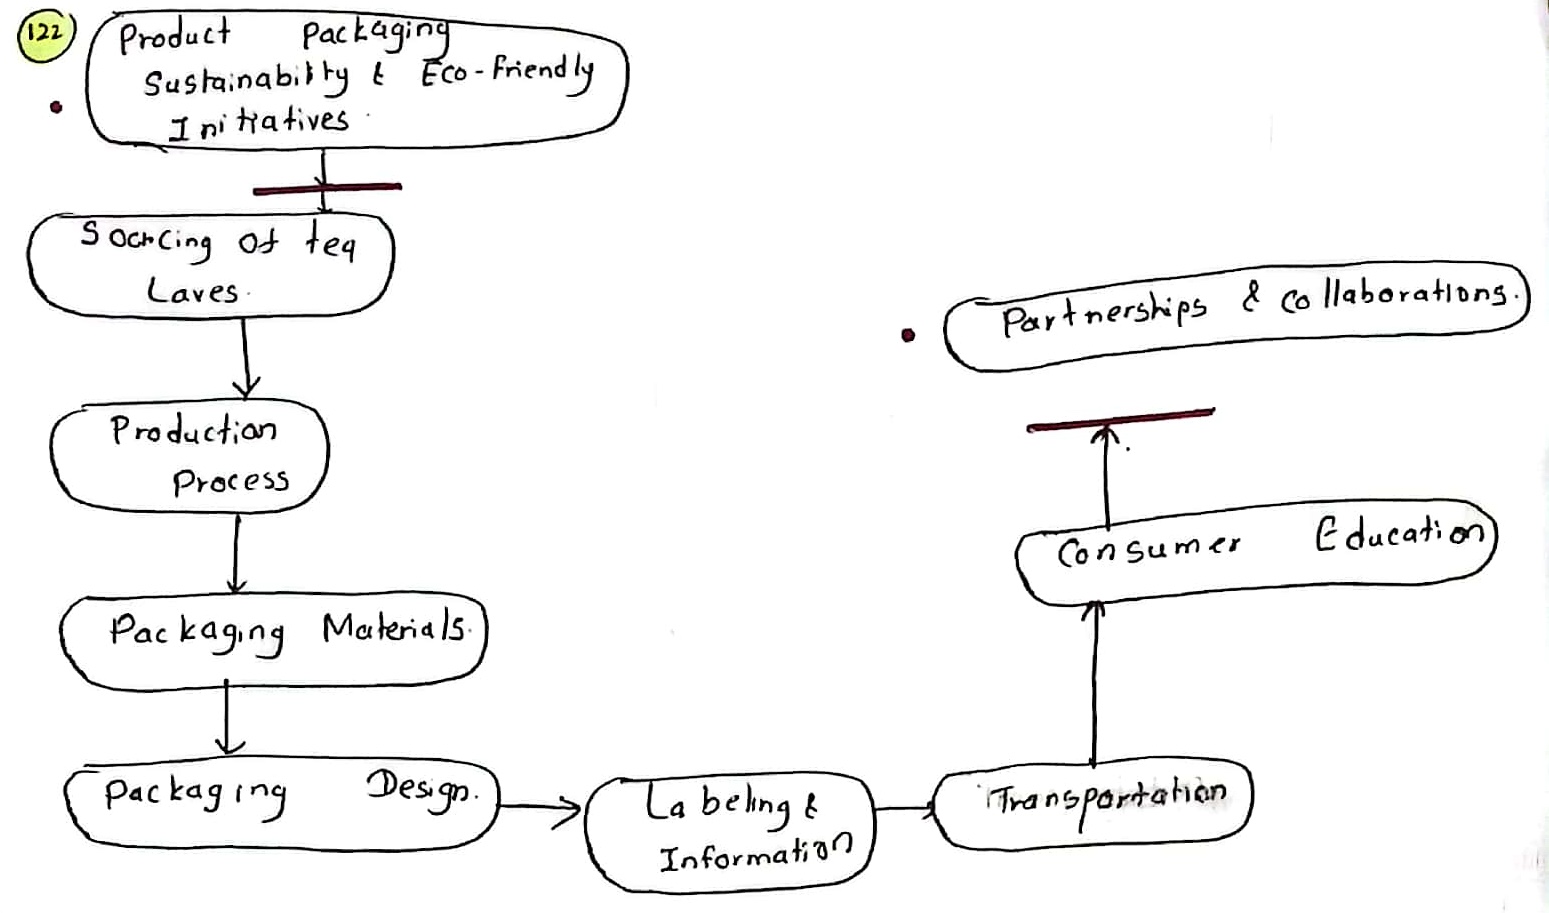 122
Product Packaging
Sustainability & Eco-Friendly
Initiatives.
Sourcing of tea
Laves.
Production
Process
Packaging Materials.
Packaging Design.
Labeling &
Information
Transportation
Consumer Education
Partnerships & Collaborations.